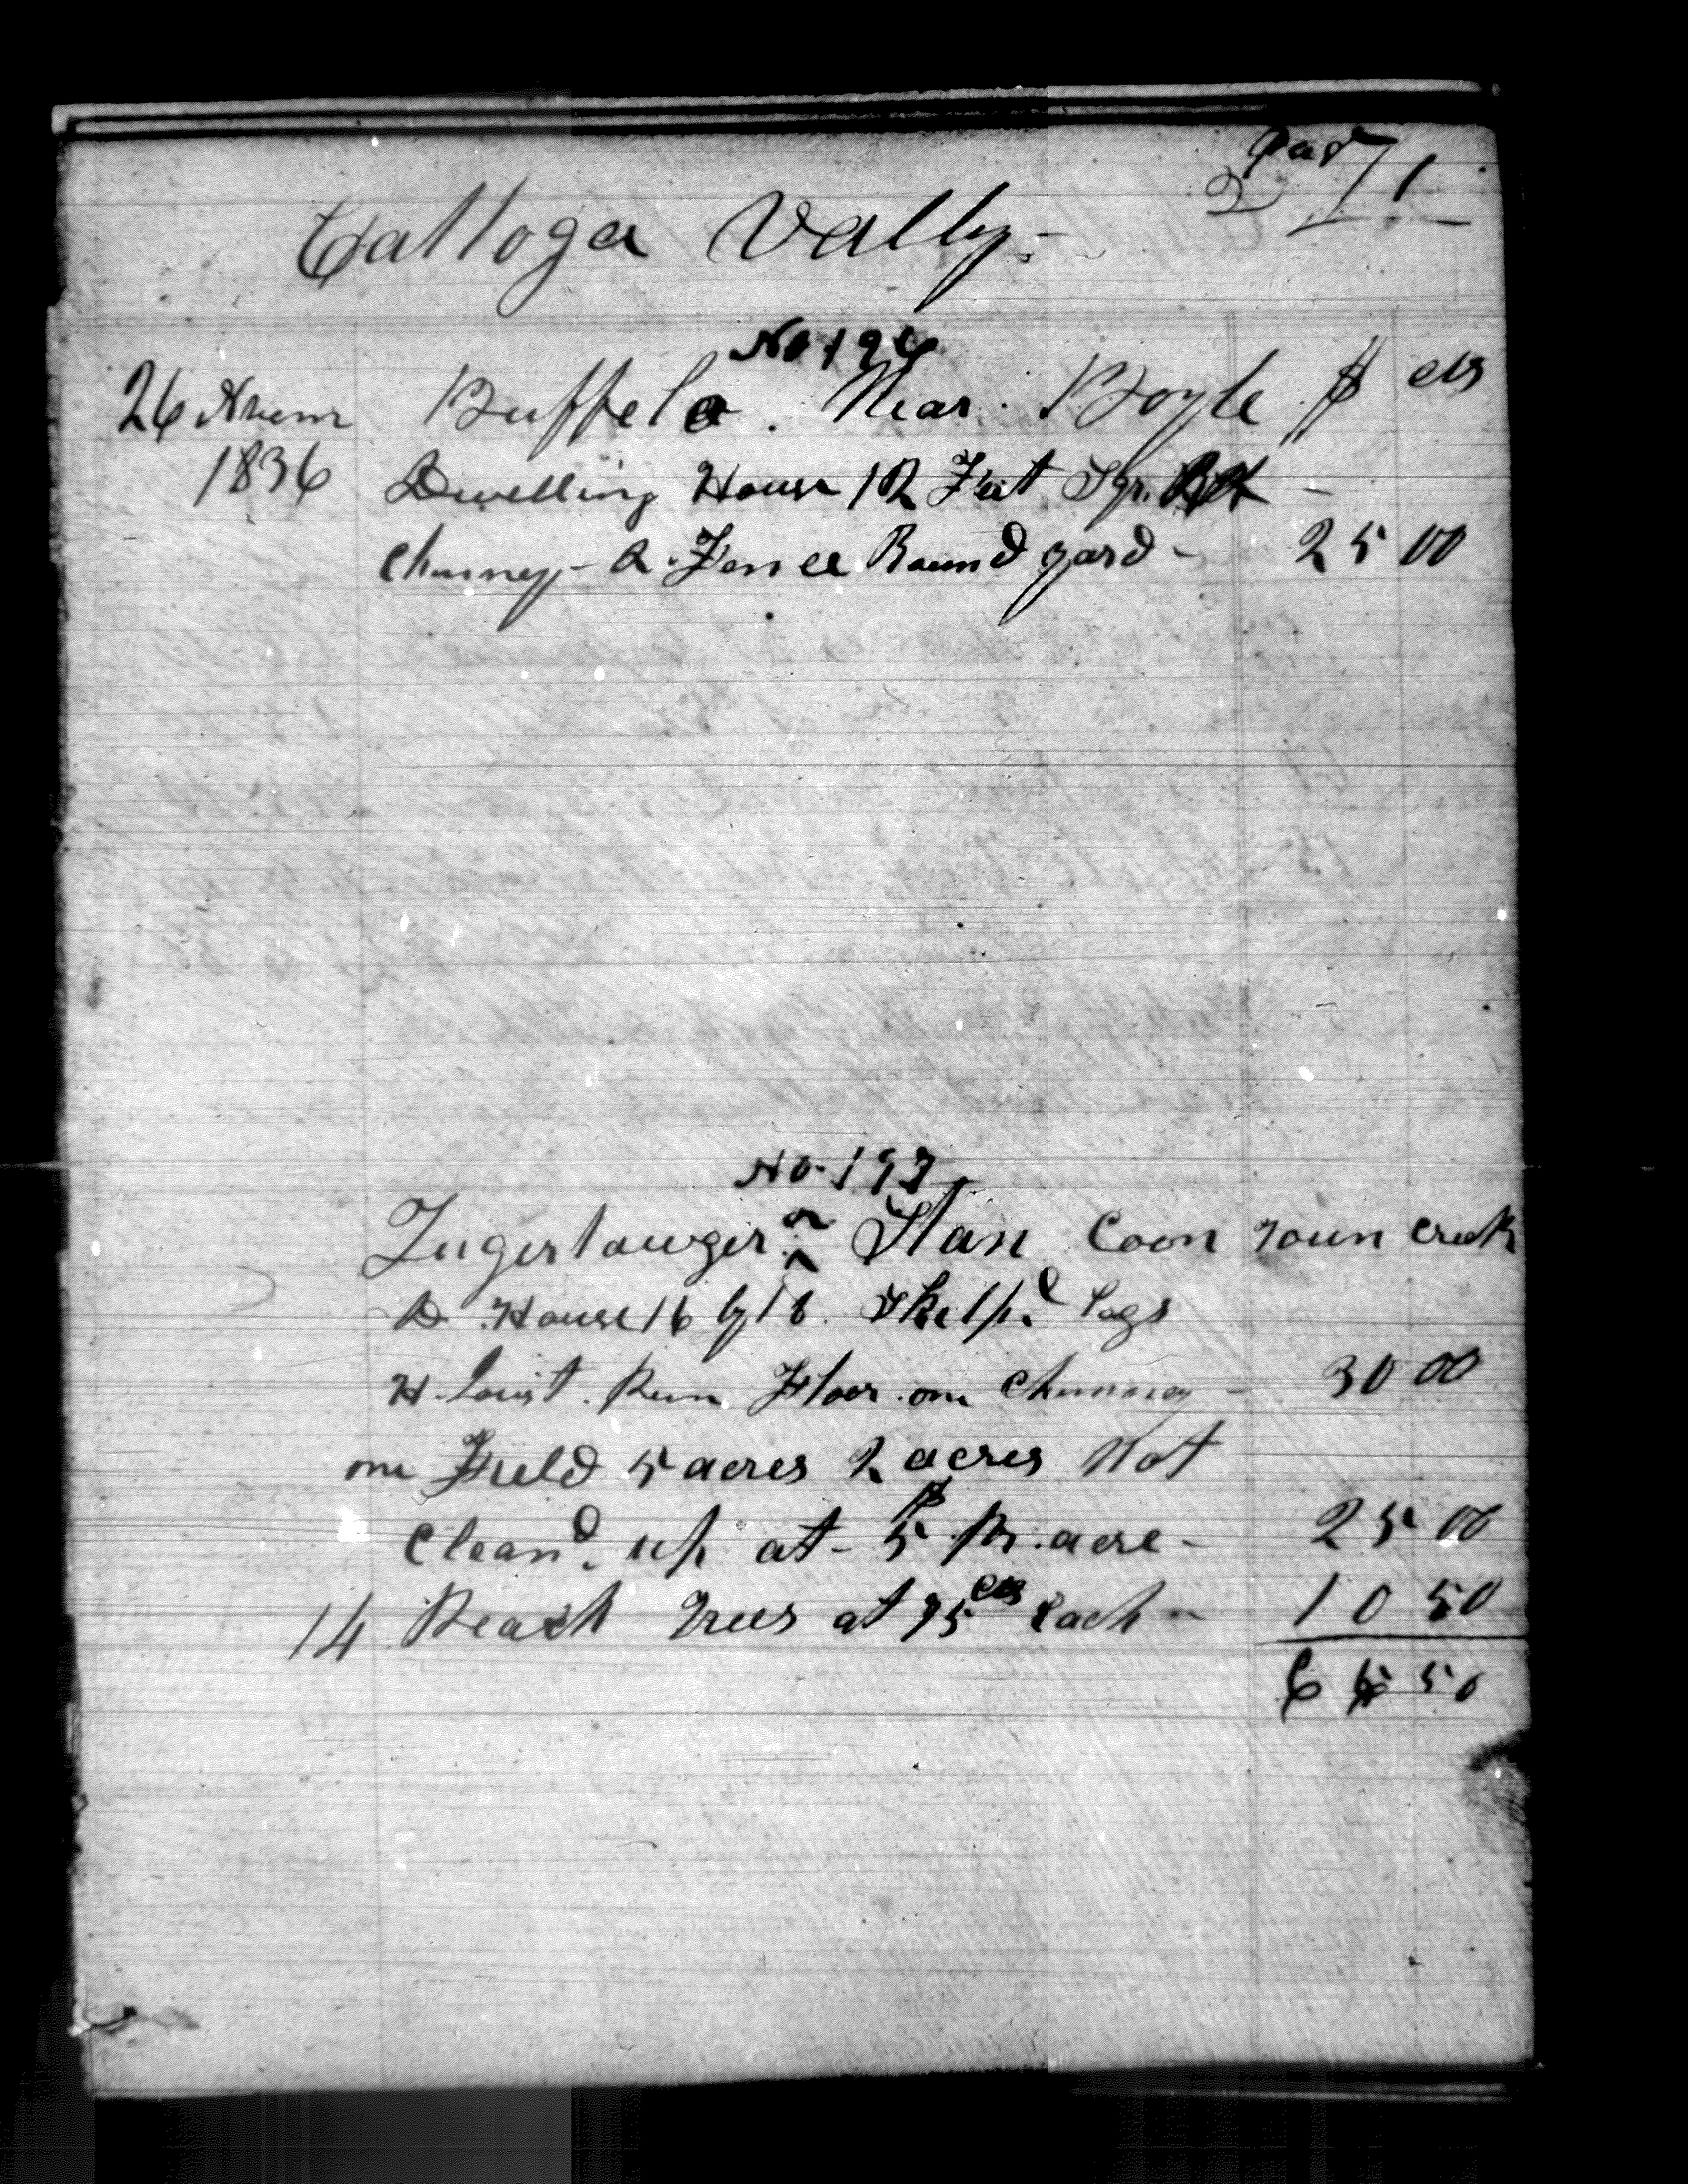 Page 71
Cattoga Vally
No 196
26 Novem Buffelo. Near. Boyle $ cts
1836 Dwelling House 12 Feet Sqr.
Chimney - & Fence Round yard - 25 00
No. 197
Stan Coon Town Creek
D House 16 by 18. Skelp.d logs
H. Joist. Pun Floor. one Chimney - 30 00
one Field 5 acres 2 acres Not
Clean.d up at - $5 pr. acre - 25 00
14 Peach Trees at 75 cts Each - 10 50
65 50